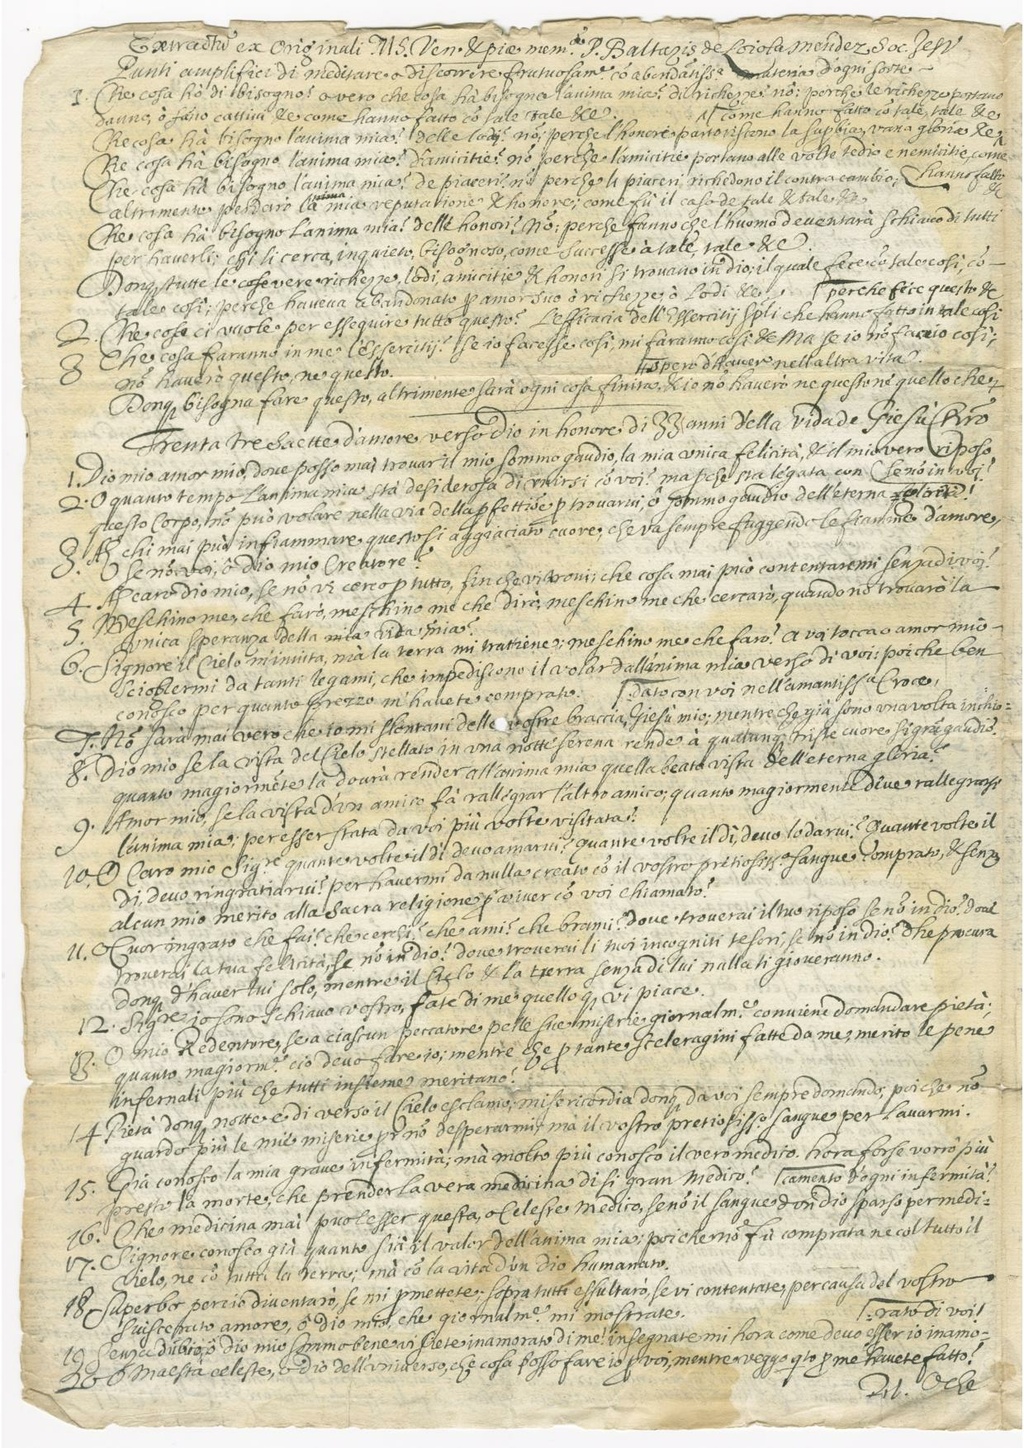 Extractũ ex Originali MS. Ven. & piæ mem.æ P. Baltazis de Loiola Mendez Soc. Iesv
Punti amplifici di meditare o discorrere frutuosam.e cõ abondãtiss.a materia d'ogni sorte
1. Che cosa hò di bisogno? overo che cosa hà bisogno l'anima mia? di richezze? nõ; perche le richezze portano
danno, ò fãno cattivi &c come hanno fatto cõ tale tale &c. come hanno fatto cõ tale, tale &c
Che cosa hà bisogno l'anima mia? delle lodi? nõ; perche l'honore partoriscono la supbia, vana gloria &c
Che cosa hà bisogno l'anima mia? d'amicitie? nõ perche l'amicitie portano alle volte tedio e nemicitie, come
Che cosa hà bisogno l'anima mia? de piaceri? nõ perche li piaceri richedono il contracambio; hanno fatto &c
altrimente perderò la mia anima reputatione & honore; come fù il caso de tale & tale &c
Che cosa hà bisogno l'anima mia? delli honori? Nõ; perche fanno che l'huomo deventarà schiavo di tutti
per haverli; essi li cerca, inquieto, bisognoso, come successe à tale, tale &c.
Donq; tutte le cose vere richezze, lodi, amicitie & honori si trovano in dio; il quale fece cõ tale cosi, cõ
tale cosi; perche haveva abandonato p amor suo ò richezze, ò lodi &c perche fece questo &c
2. Che cosa ci vuole per esseguire tutto questo? L'efficacia dell'Essercitij Spli che hanno fatto in tale cosi
3 Che cosa faranno in me l'Essercitij? se io facesse cosi, mi faranno cosi &c Ma se io nõ faccio cosi;
nõ haverò questo, ne questo. spero d'haver nell'altra vita.
Donq; bisogna fare questo, altrimente sarà ogni cosa finita, & io nõ haverò ne questo nè quello che
Trenta tre saette d'amore verso Dio in honore di 33 anni della vida de Giesù Chro
1. Dio mio amor mio, dove posso mai trovar il mio sommo gaudio, la mia unica felicità, & il mio vero riposo
se nõ in voi?
2. O quanto tempo l'anima mia stà desiderosa di unirsi cõ voi? ma pche stà legata con
questo Corpo, nõ può volare nella via della pfettiõe p trovarvi, ò sommo gaudio dell'eterna gloria!
3. Ah chi mai può infiammare questo si aggiaciato cuore, che va sempre fuggendo le fiamme d'amore,
se nõ voi, ò dio mio Creatore?
4. Ah caro dio mio, se nõ vi cerco p tutto, fin che vi trovi; che cosa mai può contentaremi senza di voi?
5. Meschino me, che farò, meschino me che dirò, meschino me che cercarò, quando nõ trovarò la
unica speranza della mia vida mia?
6. Signore il Cielo m'invita, mà la terra mi trattiene; meschino me che farò? A voi tocca o amor mio
scioglermi da tanti legami, che impediscono il volar dall'anima mia verso di voi; poiche ben
conosco per quanto prezzo m'havete comprato. dato con voi nell'amantiss.a Croce,
7. Nõ sarà mai vero che io mi slontani delle vostre braccia, Giesù mio; mentre che già sono una volta inchio-
8. Dio mio se la vista del Cielo stellato in una notte serena rende à qualunq; triste cuore si grã gaudio.
quanto magiormẽte la dourà render all'anima mia quella beata vista dell'eterna gloria?
9. Amor mio, se la vista d'un amico fà rallegrar l'altro amico; quanto magiormente deve rallegrarsi
l'anima mia; per esser stata da voi più volte visitata?
10. O Caro mio Sig.re quante volte il dì devo amarvi? quante volte il dì, devo lodarvi? Quante volte il
Dì, devo ringratiarvi? per havermi da nulla creato cõ il vostro pretiosiss.o sangue comprato, & senza
alcun mio merito alla sacra religione p viver cõ voi chiamato?
11. O Cuor ingrato che fai? che cerchi? che ami? che brami? dove troverai il tuo riposo se nõ in dio? dove
troverai la tua felicità, se nõ in dio? dove troverai li tuoi incogniti tesori, se nõ in dio? dhe procura
donq; d'haver lui solo, mentre il Cielo & la terra senza di lui nulla ti gioveranno.
12. Sig.re io sono Schiavo vostro, fate di me quello q; vi piace.
13. O mio Redentore, se a ciascun peccatore pelle sue miserie giornalm.e conviene domandare pietà;
quanto magiorm.e ciò devo fare io; mentre che p tante sceleragini fatte da me, merito le pene
infernali più che tutti insieme meritano?
14 Pietà donq; notte e di verso il Cielo esclamo, misericordia donq; da voi sempre domando; poiche nõ
guardo più le mie miserie p nõ desperarmi; mà il vostro pretiosiss.o sangue per lavarmi.
15. Già conosco la mia grave infermità; mà molto più conosco il vero medico. hora forse vorrò più
presto la morte, che prender la vera medicina di si gran Medico? camento d'ogni infermità?
16. Che medicina mai puol esser questa, o Celeste Medico, se nõ il sangue d'un dio sparso per medi-
17. Signore conosco già quanto sia il valor dell'anima mia; poiche nõ fù comprata ne col tutto il
Cielo, ne cõ tutta la terra; mà cõ la vita d'un dio humanato.
18 Superbo perciò diventarò, se mi pmettete; sopra tutti essultarò, se vi contentate, per causa del vostro
sviscerato amore, ò dio mio, che giornalm.e mi mostrate. rato di voi!
19 Senza dubio, ò dio mio sommo bene vi siete inamorato di me; insegnate mi hora come devo esser io inamo-
20 O Maestà celeste, o dio dell'universo, che cosa posso fare io p voi, mentre veggo q.to p me havete fatto?
21. O che